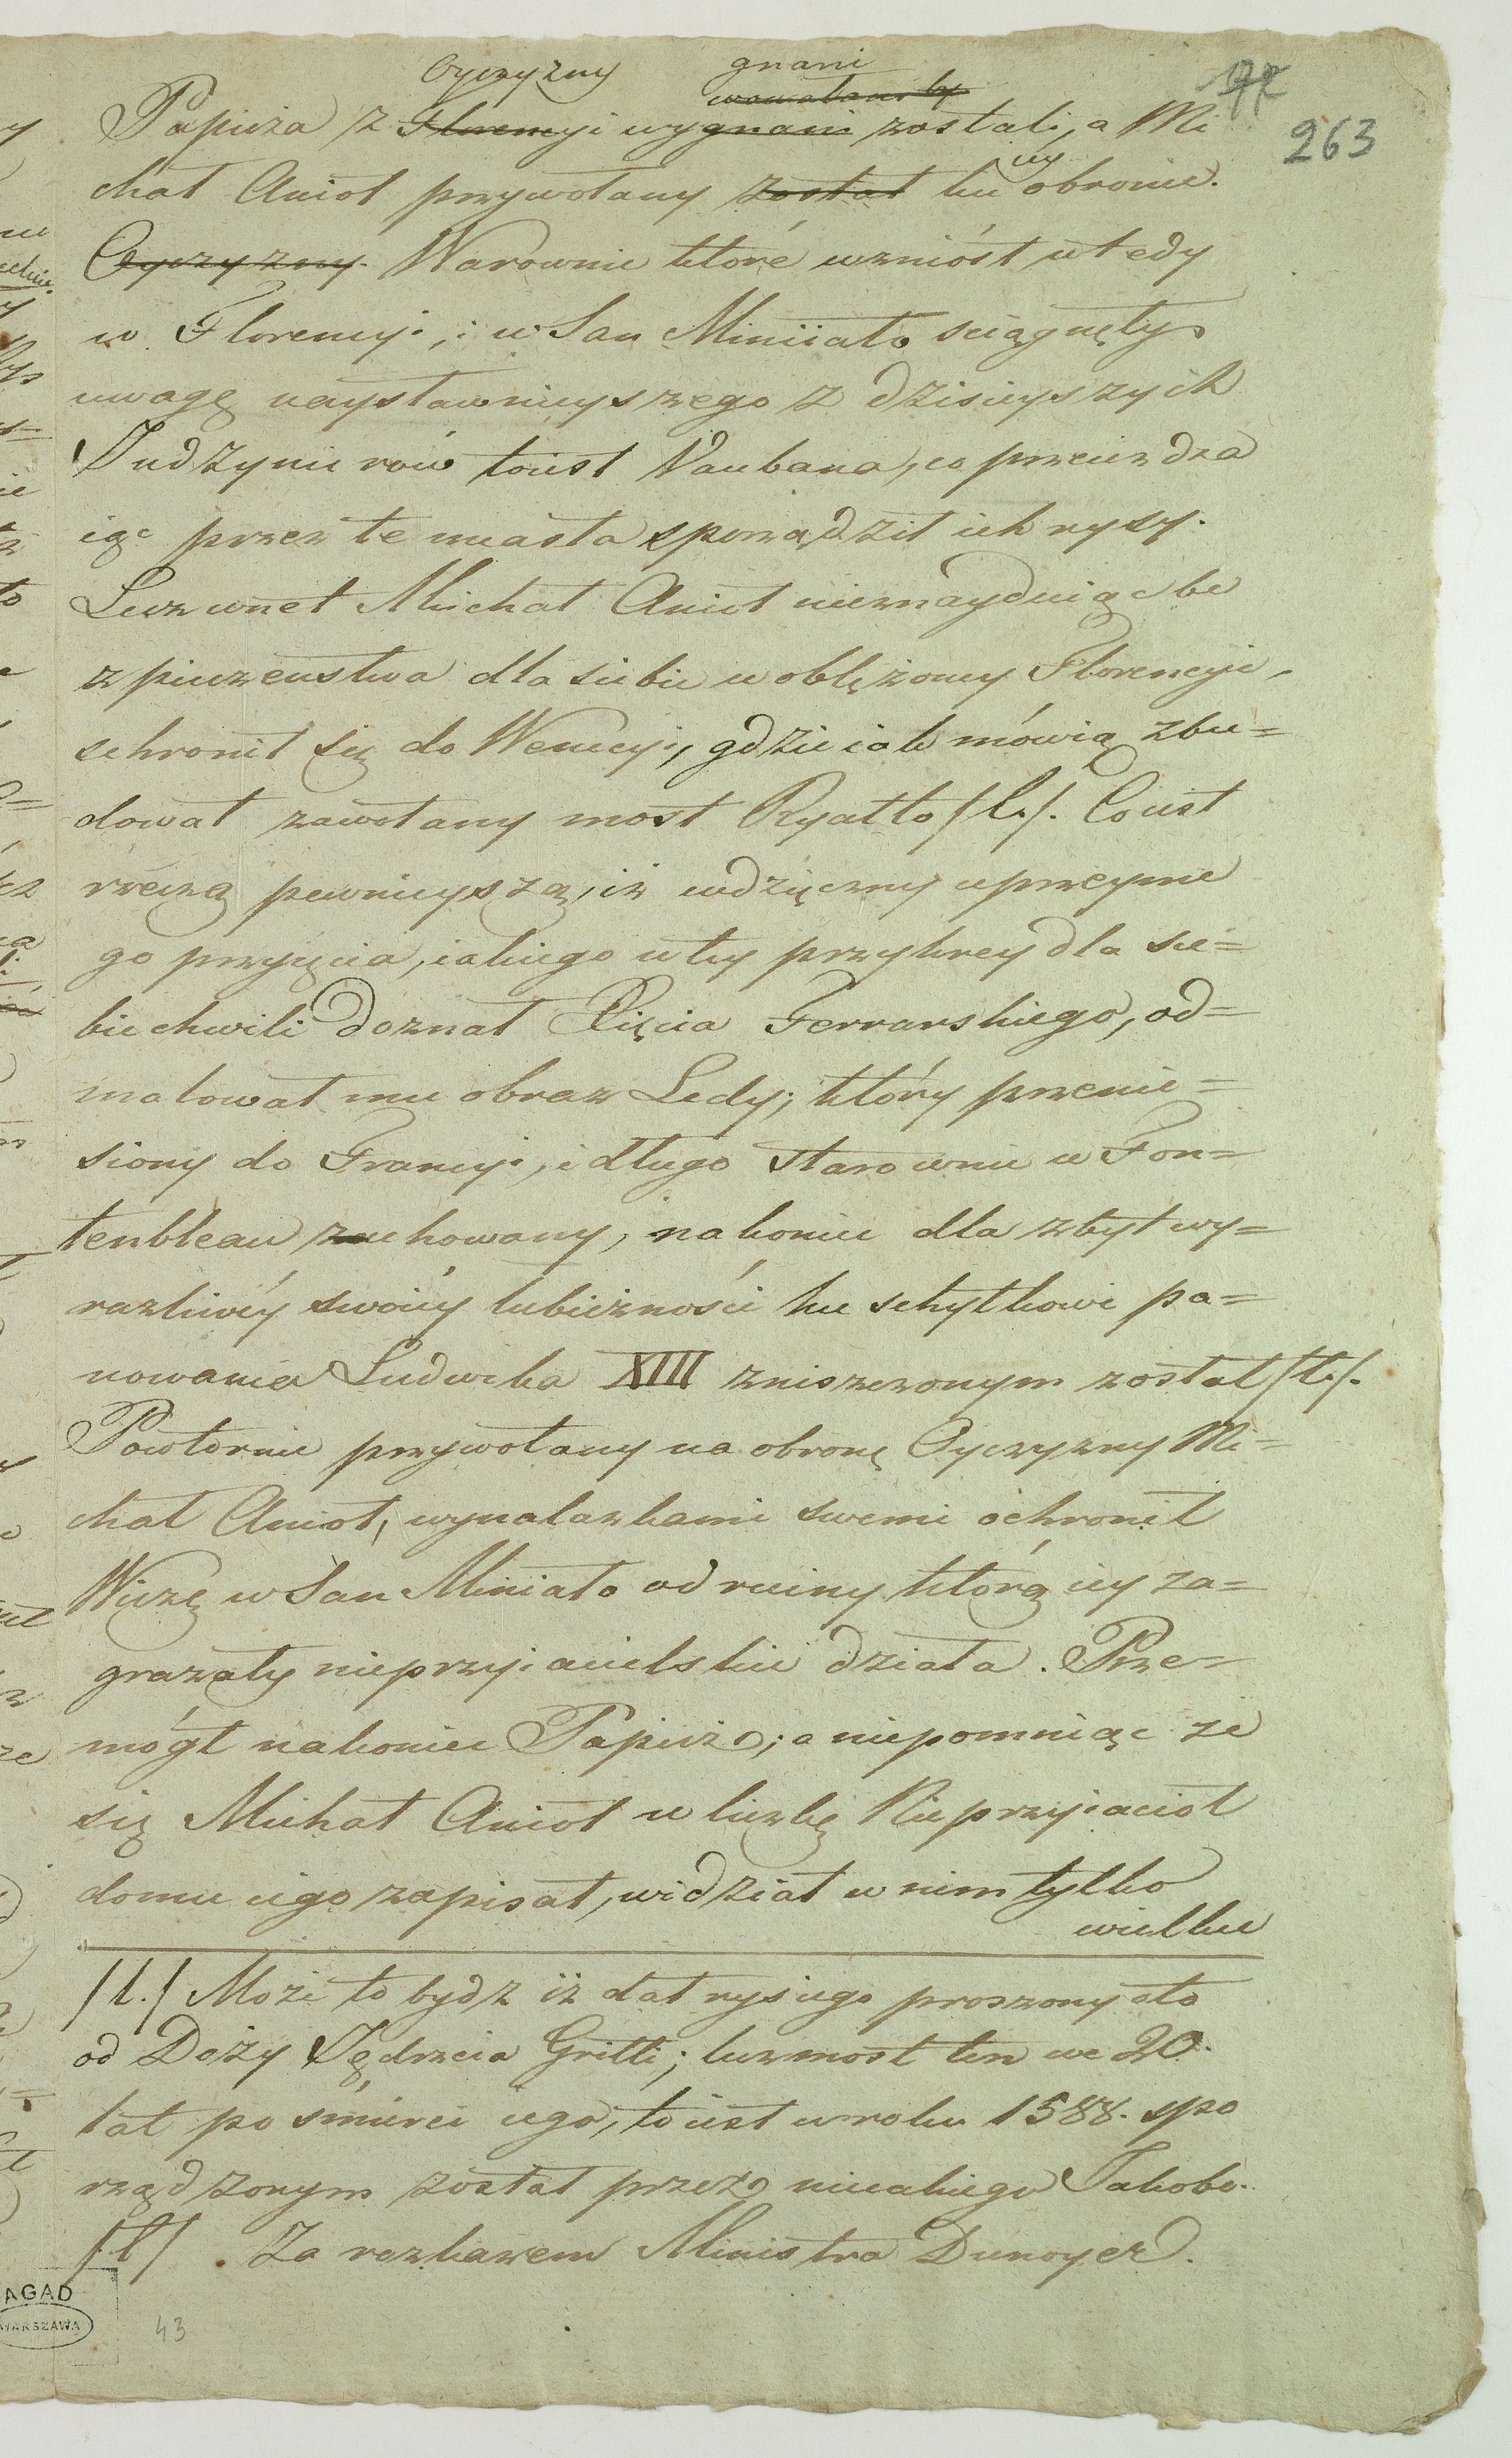 Oyczyzny gnani
77
263
Papieża z Florencyi wygnani zostali, a Mi
chał Anioł przywołany został ku iey obronie.
Oyczyzny. Warownie które wzniósł wtedy
w Florencyi, i w San Miniiato sciągnęły
uwagę naysławnieyszego z dzisieyszych
Indzynierów toiest Vaubana, co przeiezdza
iąc przez te miasta sporządził ich rysy.
Lecz wnet Michał Anioł nieznayduiąc be
zpieczenstwa dla siebie w oblężoney Florencyi,
schronił się do Wenecyi, gdzie iak mówią zbu=
dował zawołany most Ryalto /1./. Co iest
rzeczą pewnieyszą, iż wdzięczny uprzeyme
go przyięcia, iakiego w tey przykrey dla sie=
bie chwili doznał Xięcia Ferrarskiego, od=
malował mu obraz Ledy; który przenie=
siony do Francyi, i długo starownie w Fon=
tenbleau zachowany, nakoniec dla zbyt wy=
razliwéy swoiéy lubieżności ku schyłkowi pa=
nowania Ludwika XIII zniszczonym został /1./.
Powtornie przywołany na obronę Oyczyzny Mi=
chał Anioł, wynalazkami swemi ochronił
Wieżę w San Miniato od ruiny którą iey za=
grazały nieprzyiacielskie działa. Prze=
mógł nakoniec Papież; a niepomniąc ze
się Michał Anioł w liczbę Nieprzyiacioł
domu iego zapisał, widział w nim tylko
wielkie
/1./ Może to bydz iż dał rys iego proszony oto
od Doży Jędrzeia Gritti; lecz most ten we 20.
lat po śmierci iego, to iest w roku 1588. spo
rządzonym został przez nieiakiego Jakoba.
/1/ . Za rozkazem Ministra Dunoyer.
AGAD
WARSZAWA
43